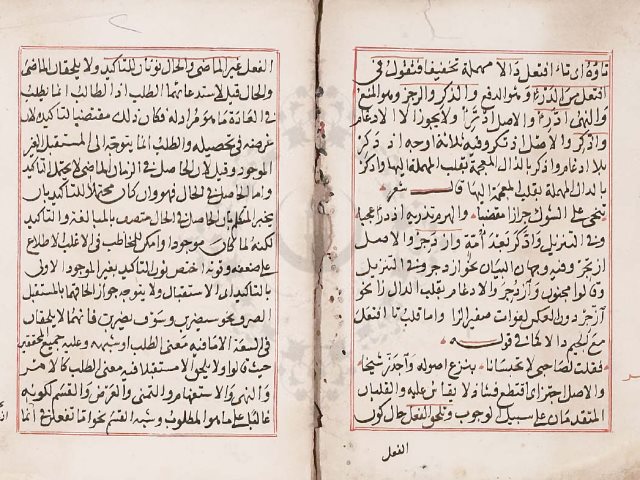 تاؤه اى تاء افتعل دالا مهملة تخفيفا فتقول فى
افتعل من الدرء وهو الدفع والذكر والزجر وهو المنع
والنهى ادرء والاصل ادترء ولا يجوز الا الادغام
واذكر والاصل اذتكر وفيه ثلاثة اوجه اذدكر
بلا ادغام واذكر بالذال المعجمة بقلب المهملة اليها وادكر
بالدال المهملة بقلب المعجمة اليها قال شعر
تنحى على الشوك جرازا مقضبا والهرم تذريه اذدراء عجبا
وفى التنزيل وادكر بعد امة وازدجر والاصل
ازتجر وفيه وجهان البيان نحو ازدجر وفى التنزيل
وقالوا مجنون وازدجر والادغام بقلب الدال زايا نحو
ازجر دون العكس لفوات صفير الزا واما قلب تا افتعل
مع الجيم دالا كما فى قوله
فقلت لصاحبى لا تحبسانا بنزع اصوله واجدز شيحا
والاصل اجتز اى اقتطع فشاذ ولا يقاس عليه والقلبان
المتقدمان على سبيل الوجوب ويلحق الفعل حال كون
الفعل
الفعل غير الماضى والحال نونان للتاكيد ولا يلحقان الماضى
والحال قيل لاستدعائهما الطلب اذ الطالب انما يطلب
فى العادة ما هو مراد له فكان ذلك مقتضيا لتاكيده لان
غرضه فى تحصيله والطلب انما يتوجه الى المستقبل الغير
الموجود وقيل لان الحاصل فى الزمان الماضى لا يحتمل التاكيد
واما الحاصل فى الحال فهو وان كان محتملا للتاكيد بان
يخبر المتكلم بان الحاصل فى الحال متصف بالمبالغة والتاكيد
لكنه لما كان موجودا وامكن للمخاطب فى الاغلب الاطلاع
على ضعفه وقوته اختص نون التاكيد بغير الموجود الاولى
بالتاكيد اى الاستقبال ولا يتوهم جواز الحاقهما بالمستقبل
الصرف نحو سيضربن وسوف يضربن فانهما لا يلحقان
فى السعة الا ما فيه معنى الطلب او شبهه وعليه جميع المحققين
حيث قالوا ولا يلحق الا مستقبلا فيه معنى الطلب كالامر
والنهى والاستفهام والتمنى والعرض والقسم لكونه
غالبا على ما هو المطلوب وشبه القسم نحو اما تفعلن فى انما